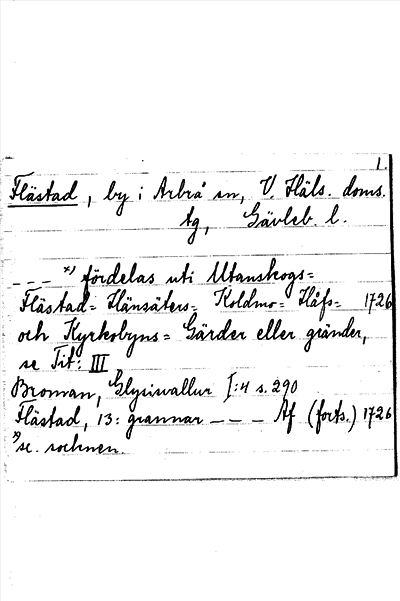 1.
Flästad, by i Arbrå sn, V. Häls. doms.
tg, Gävleb. l.
— — — *) fördelas uti Utanskogs=
Flästad= Hänsäters= Koldmo= Häfs= 1726
och Kyrkobyns= Gärder eller gränder,
se Tit: III
Broman, Glysisvallur I:4 s. 290
Flästad, 13: grannar — — — Af (forts.) 1726
*) sc. socknen.